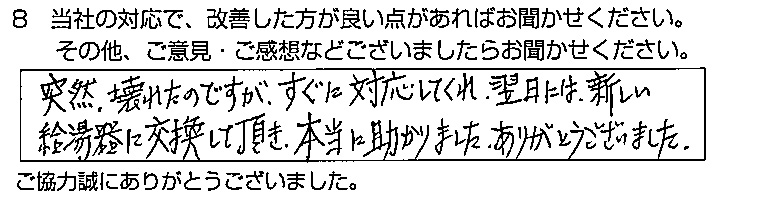 8 当社の対応で、改善した方が良い点があればお聞かせください。
その他、ご意見・ご感想などございましたらお聞かせください。
突然、壊れたのですが、すぐに対応してくれ、翌日には、新しい
給湯器に交換して頂き、本当に助かりました、ありがとうございました。
ご協力誠にありがとうございました。